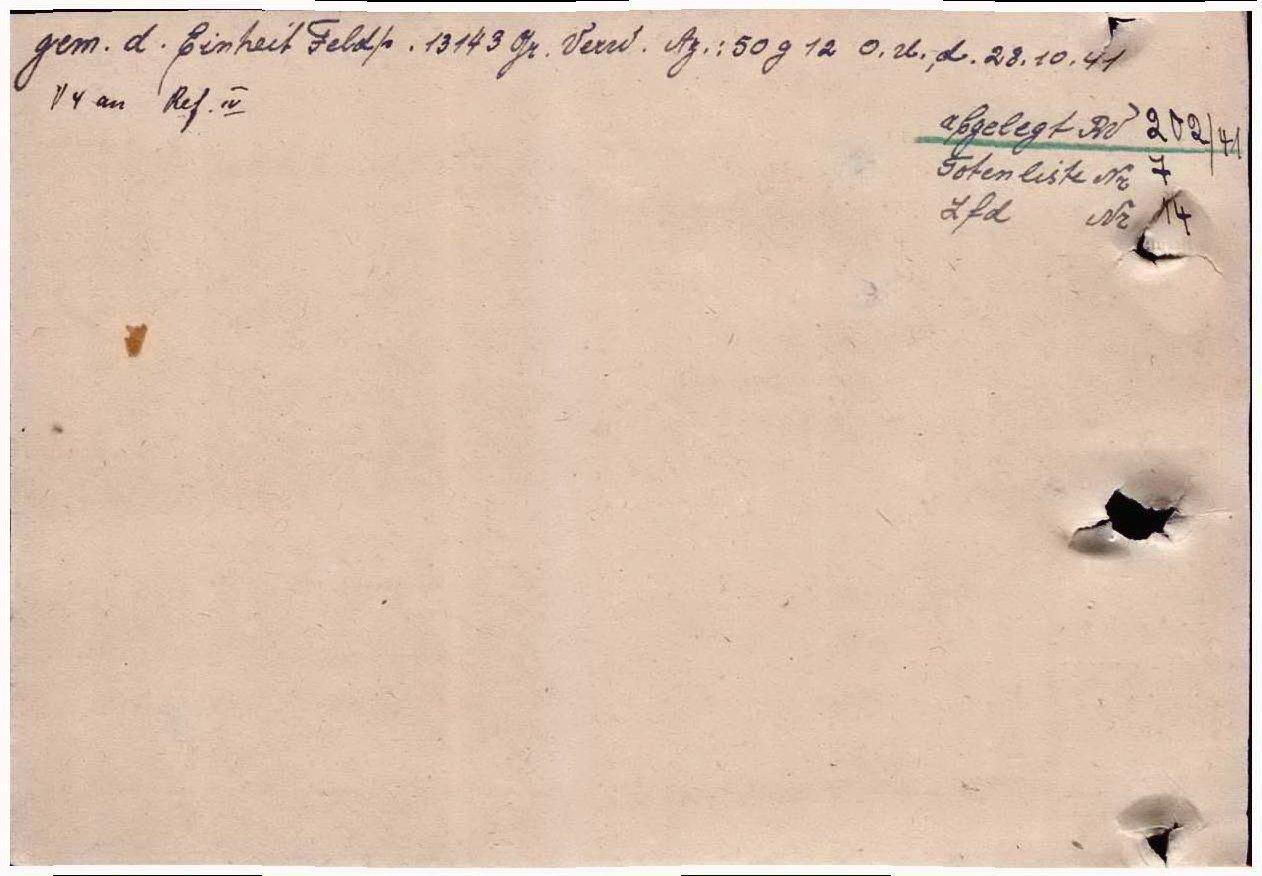 gem. d. Einheit Feldp. 13143 Gr. Verw. Az.: 50 g 12 O.U. d. 28.10.41
an Ref. IV
abgelegt RV 202/41
Totenliste Nr 7
Lfd Nr 14